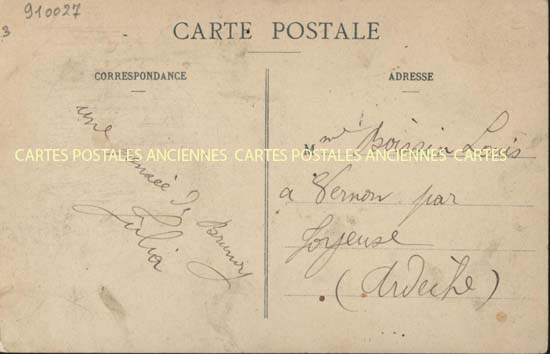 910027
3
CARTE POSTALE
CORRESPONDANCE
ADRESSE
une pensée de Brunoy
Julia
Mme Boissin Louis
à Vernon par
Joyeuse
(Ardèche)
CARTES POSTALES ANCIENNES CARTES POSTALES ANCIENNES CARTES